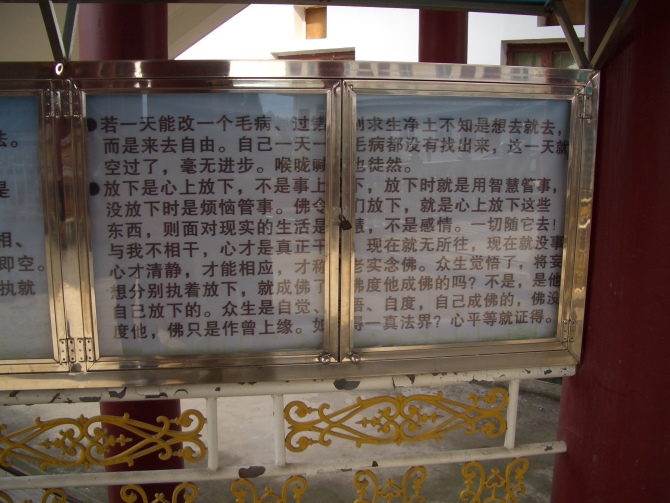 法。
是
相、
即空。
执就
●若一天能改一个毛病、过 则求生净土不知是想去就去,
而是来去自由。自己一天一 毛病都没有找出来,这一天就
空过了,毫无进步。喉咙喊 也徒然。
●放下是心上放下,不是事上 下,放下时就是用智慧管事,
没放下时是烦恼管事。佛令 们放下,就是心上放下这些
东西,则面对现实的生活是 慧,不是感情。一切随它去!
与我不相干,心才是真正干 现在就无所往,现在就没事
心才清静,才能相应,才称 老实念佛。众生觉悟了,将妄
想分别执着放下,就成佛了 佛度他成佛的吗?不是,是他
自己放下的。众生是自觉、 悟、自度,自己成佛的,佛没
度他,佛只是作曾上缘。如 得一真法界?心平等就证得。